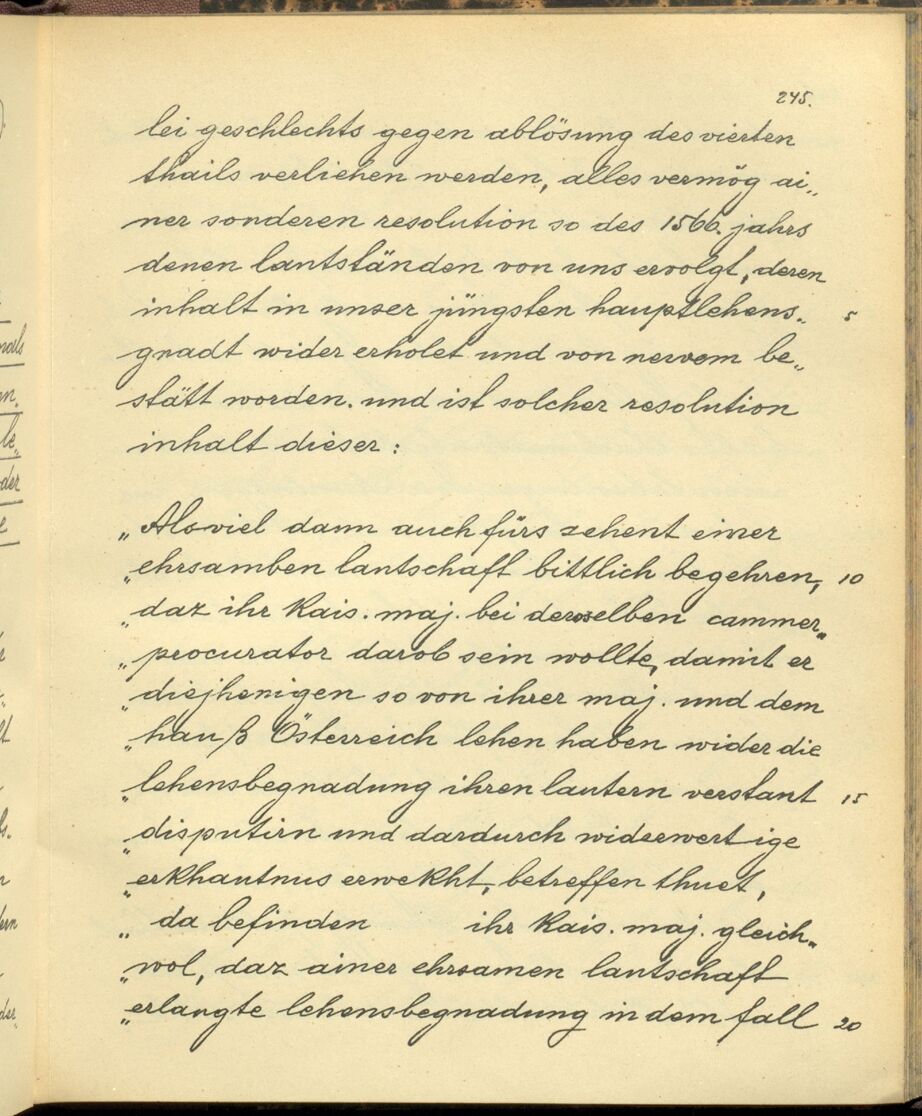 245.
lei geschlechts gegen ablösung des vierten
thails verliehen werden, alles vermög ai„
ner sonderen resolution so des 1566. jahrs
denen lantständen von uns ervolgt, deren
inhalt in unser jüngsten hauptlehens„ 5
gnadt wider erholet und von newem be„
stätt worden. und ist solcher resolution
inhalt dieser:
„Alsviel dann auch fürs zehent einer
„ehrsamben lantschaft bittlich begehren, 10
„daz ihr Kais. maj. bei derselben cammer„
„procurator darob sein wollte, damit er
„diejhenigen so von ihrer maj. und dem
„hauß Österreich lehen haben wider die
„lehensbegnadung ihren lautern verstant 15
„disputirn und dardurch widerwertige
„erkhantnus erwekht, betreffen thuet,
„da befinden ihr Kais. maj. gleich„
„wol, daz ainer ehrsamen lantschaft
„erlangte lehensbegnadung in dem fall 20
nals
der